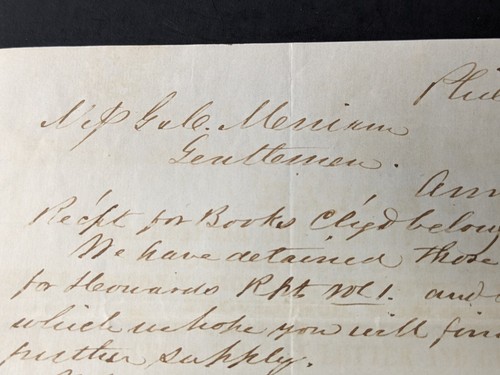 Phil
G & C. Merriam
Gentlemen.
Ann
Rec'pt for Books Ch'gd below
We have detained those
for Howards Rpts vol 1. and
which we hope you will find
further supply.